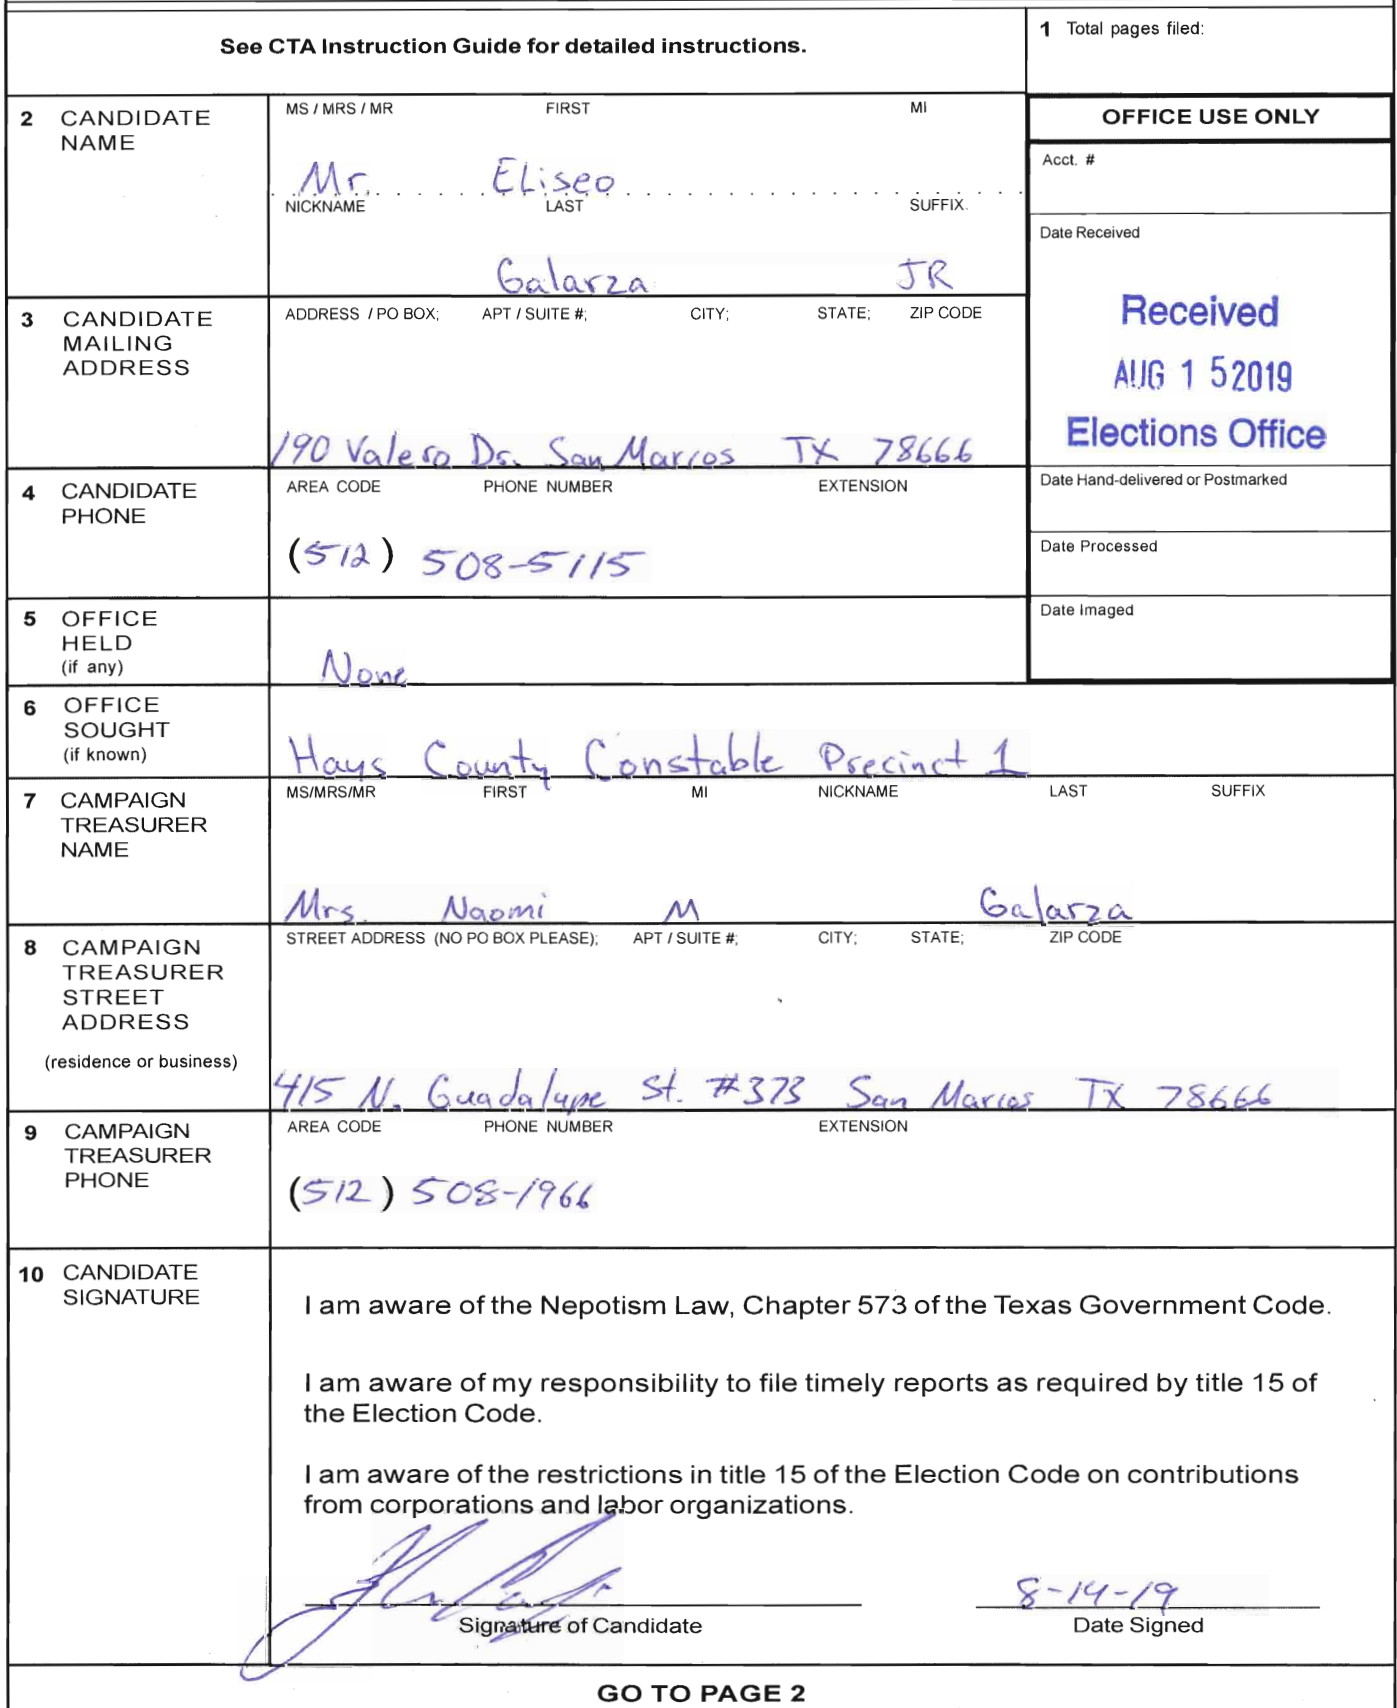 See CTA Instruction Guide for detailed instructions.
1 Total pages filed:
2 CANDIDATE NAME
MS / MRS / MR FIRST MI
Mr. ELiseo
NICKNAME LAST SUFFIX.
Galarza JR
OFFICE USE ONLY
Acct. #
Date Received
Received
AUG 15 2019
Elections Office
Date Hand-delivered or Postmarked
Date Processed
Date Imaged
3 CANDIDATE MAILING ADDRESS
ADDRESS / PO BOX; APT / SUITE #; CITY; STATE; ZIP CODE
190 Valero Dr. San Marcos TX 78666
4 CANDIDATE PHONE
AREA CODE PHONE NUMBER EXTENSION
(512) 508-5115
5 OFFICE HELD (if any)
None
6 OFFICE SOUGHT (if known)
Hays County Constable Precinct 1
7 CAMPAIGN TREASURER NAME
MS/MRS/MR FIRST MI NICKNAME LAST SUFFIX
Mrs. Naomi M Galarza
8 CAMPAIGN TREASURER STREET ADDRESS
(residence or business)
STREET ADDRESS (NO PO BOX PLEASE); APT / SUITE #; CITY; STATE; ZIP CODE
415 N. Guadalupe St. #373 San Marcos TX 78666
9 CAMPAIGN TREASURER PHONE
AREA CODE PHONE NUMBER EXTENSION
(512) 508-1966
10 CANDIDATE SIGNATURE
I am aware of the Nepotism Law, Chapter 573 of the Texas Government Code.
I am aware of my responsibility to file timely reports as required by title 15 of
the Election Code.
I am aware of the restrictions in title 15 of the Election Code on contributions
from corporations and labor organizations.
8-14-19
Signature of Candidate Date Signed
GO TO PAGE 2